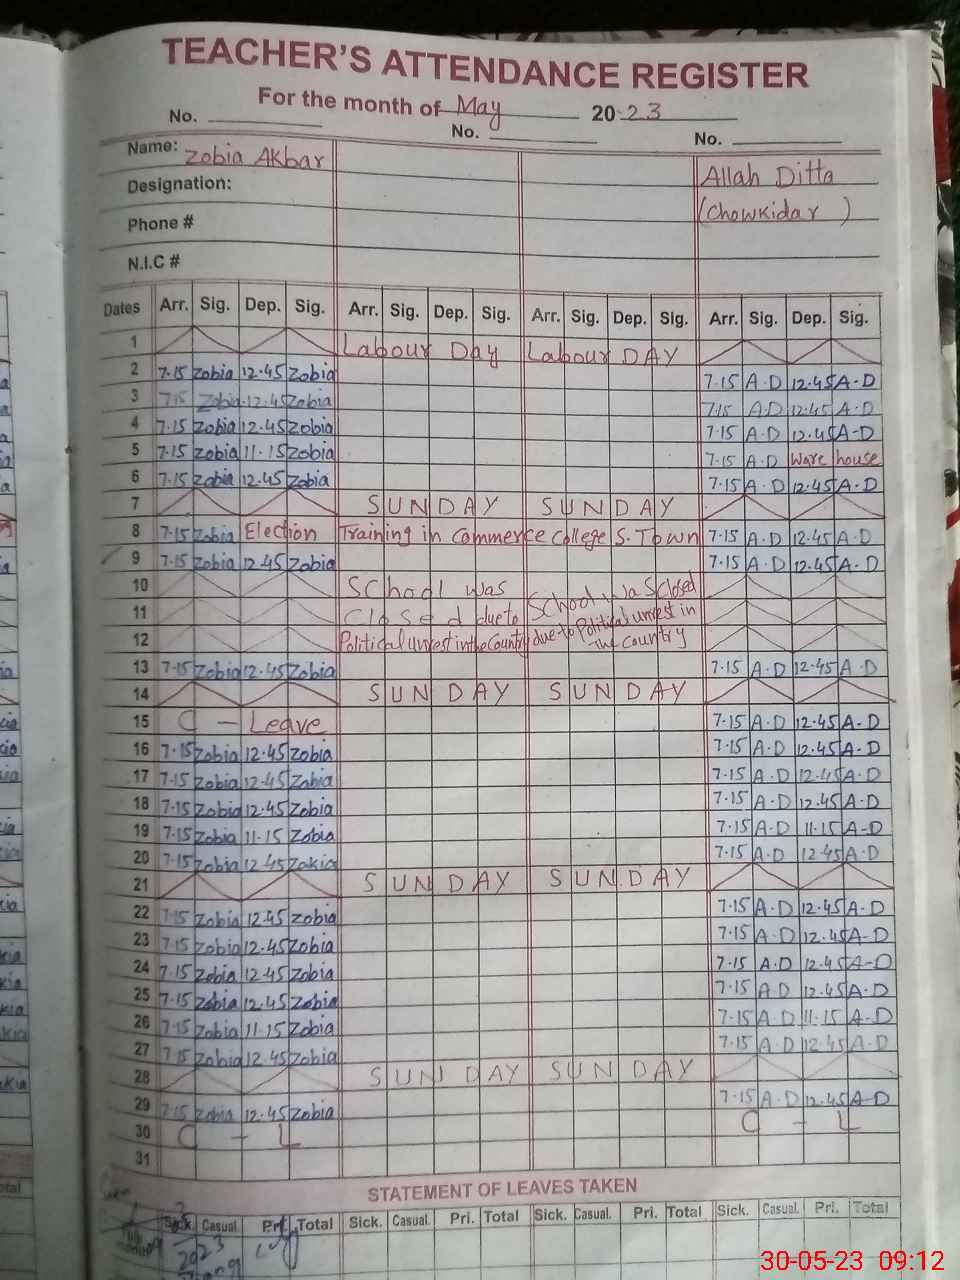 TEACHER'S ATTENDANCE REGISTER
For the month of May 2023
No. No. No.
Name: Zobia Akbar Allah Ditta
Designation: (Chowkidar )
Phone #
N.I.C #
Dates Arr. Sig. Dep. Sig. Arr. Sig. Dep. Sig. Arr. Sig. Dep. Sig. Arr. Sig. Dep. Sig.
1 Labour Day Labour DAY
2 7-15 Zobia 12.45 Zobia 7-15 A.D 12.45 A-D
3 7-15 Zobia 12.45 Zobia 7-15 A.D 12.45 A-D
4 7-15 Zobia 12.45 Zobia 7-15 A.D 12.45 A-D
5 7-15 Zobia 11-15 Zobia 7-15 A.D Ware house
6 7-15 Zobia 12.45 Zobia 7-15 A.D 12.45 A-D
7 SUNDAY SUNDAY
8 7-15 Zobia Election Training in Commerce College S.Town 7-15 A.D 12.45 A-D
9 7-15 Zobia 12.45 Zobia 7-15 A.D 12.45 A-D
10 School was School was closed
11 Closed due to due to Political unrest in
12 Political unrest in the Country the Country
13 7-15 Zobia 12.45 Zobia 7-15 A.D 12.45 A-D
14 SUNDAY SUNDAY
15 C - Leave 7-15 A.D 12.45 A-D
16 7-15 Zobia 12.45 Zobia 7-15 A.D 12.45 A-D
17 7-15 Zobia 12.45 Zobia 7-15 A.D 12.45 A-D
18 7-15 Zobia 12.45 Zobia 7-15 A.D 12.45 A-D
19 7-15 Zobia 11-15 Zobia 7-15 A.D 11-15 A-D
20 7-15 Zobia 12.45 Zakia 7-15 A.D 12.45 A-D
21 SUNDAY SUNDAY
22 7-15 Zobia 12.45 Zobia 7-15 A.D 12.45 A-D
23 7-15 Zobia 12.45 Zobia 7-15 A.D 12.45 A-D
24 7-15 Zobia 12.45 Zobia 7-15 A.D 12.45 A-D
25 7-15 Zobia 12.45 Zobia 7-15 A.D 12.45 A-D
26 7-15 Zobia 11-15 Zobia 7-15 A.D 11-15 A-D
27 7-15 Zobia 12.45 Zobia 7-15 A.D 12.45 A-D
28 SUNDAY SUNDAY
29 7-15 Zobia 12.45 Zobia 7-15 A.D 12.45 A-D
30 C - L C - L
31
STATEMENT OF LEAVES TAKEN
Sick. Casual. Pri. Total Sick. Casual. Pri. Total Sick. Casual. Pri. Total Sick. Casual. Pri. Total
2023
30-05-23 09:12